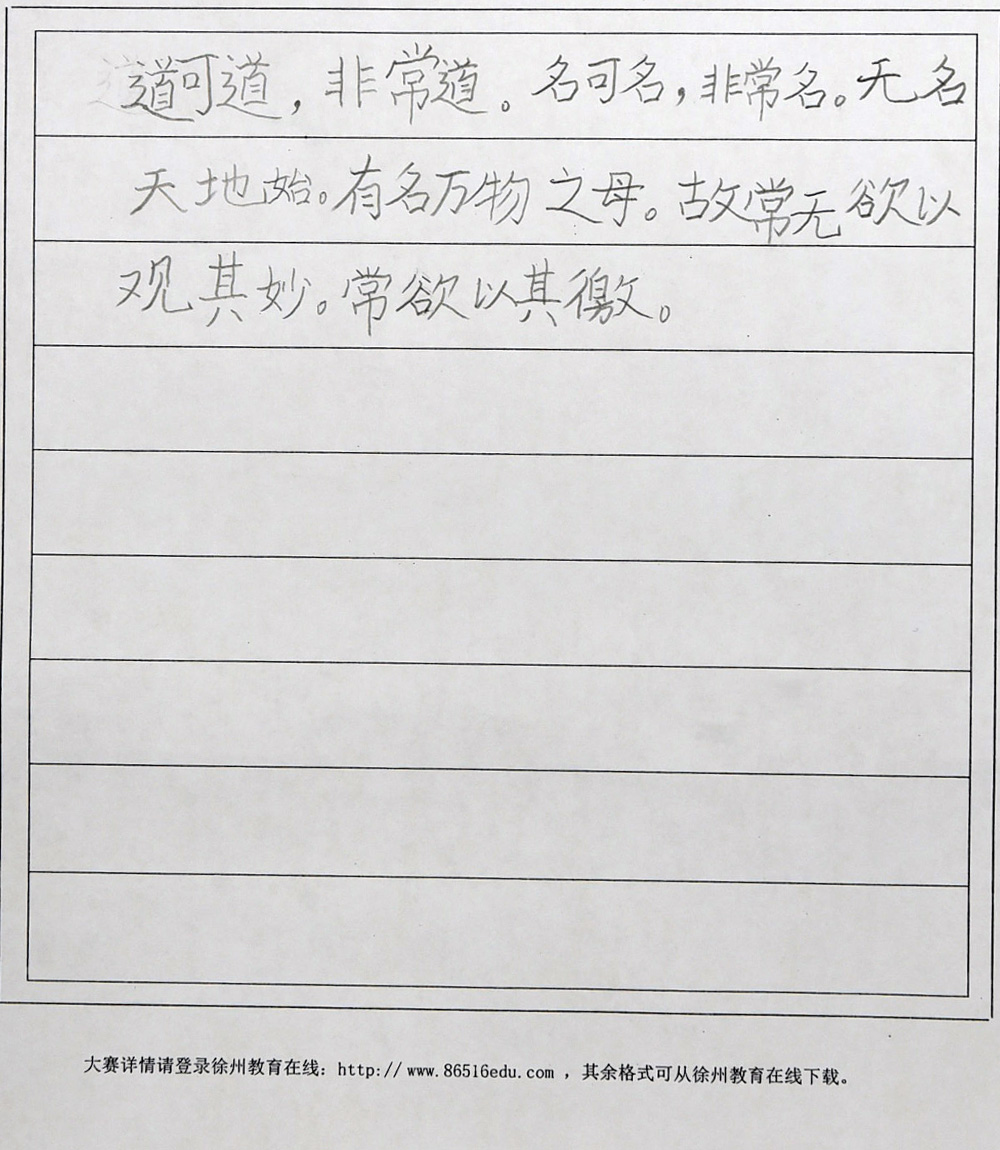 道可道，非常道。名可名，非常名。无名
天地始。有名万物之母。故常无欲以
观其妙。常欲以其徼。
大赛详情请登录徐州教育在线：http://www.86516edu.com ，其余格式可从徐州教育在线下载。